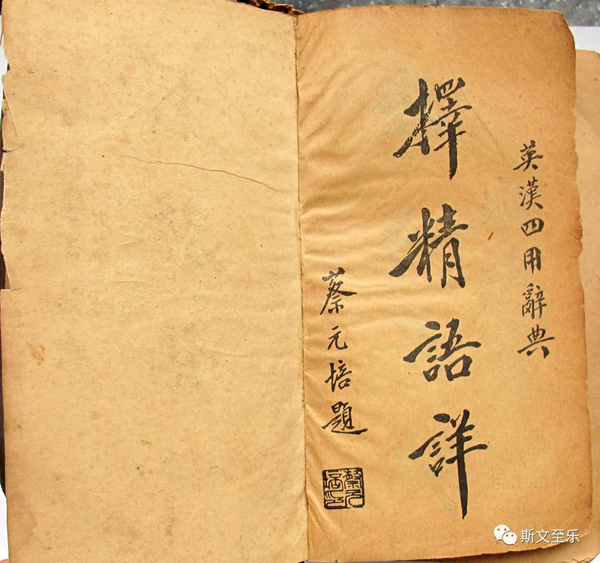 英漢四用辭典
擇精語詳
蔡元培題
蔡元培印
斯文至乐